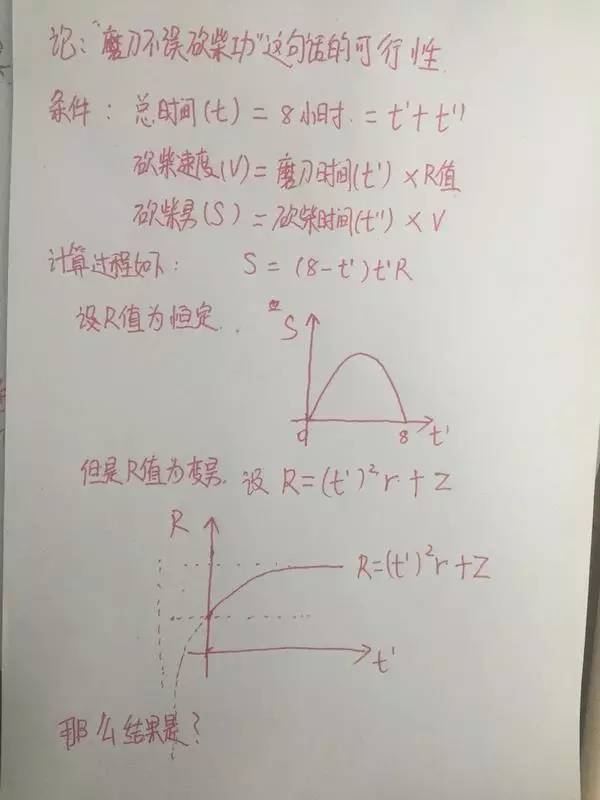 论:"磨刀不误砍柴功"这句话的可行性
条件: 总时间(t) = 8小时. = t' + t''
砍柴速度(V) = 磨刀时间(t') × R值
砍柴量(S) = 砍柴时间(t'') × V
计算过程如下: S = (8-t')t'R
设R值为恒定.
S
0 8 t'
但是R值为变量. 设 R=(t')²r + Z
R
R=(t')²r+Z
t'
那么结果是?